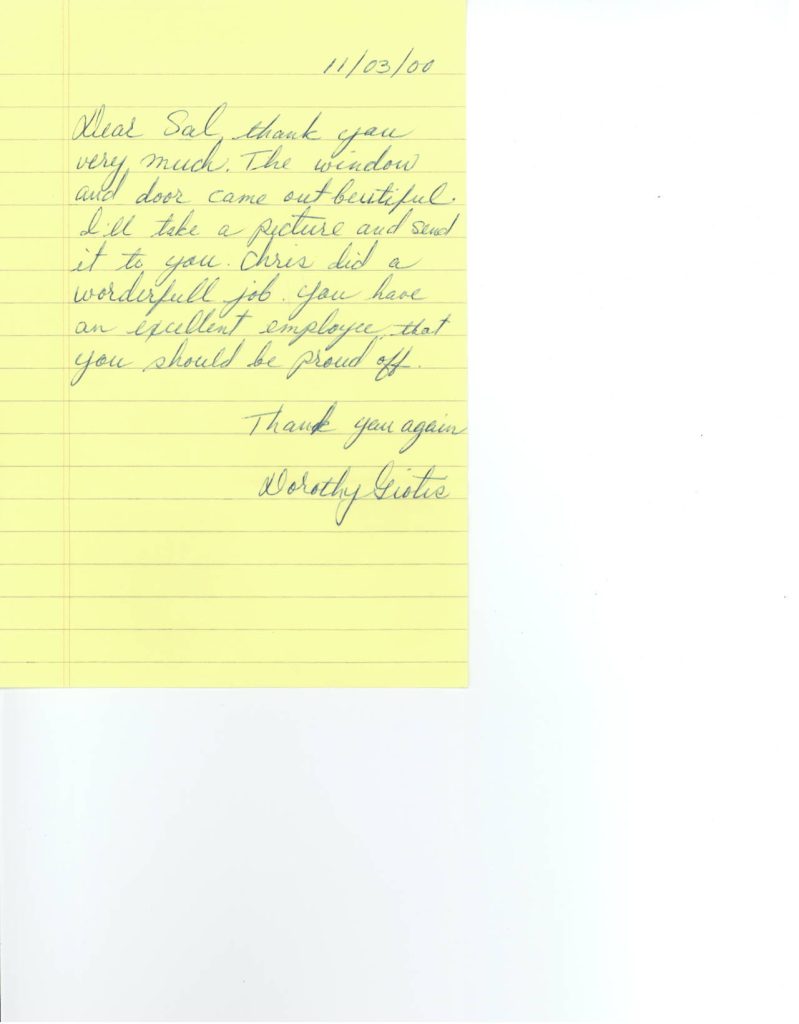 11/03/00
Dear Sal, thank you
very much. The window
and door came out beutiful.
I'll take a picture and send
it to you. Chris did a
worderfull job. You have
an excellent employee, that
you should be proud off.
Thank you again
Dorothy Giotis